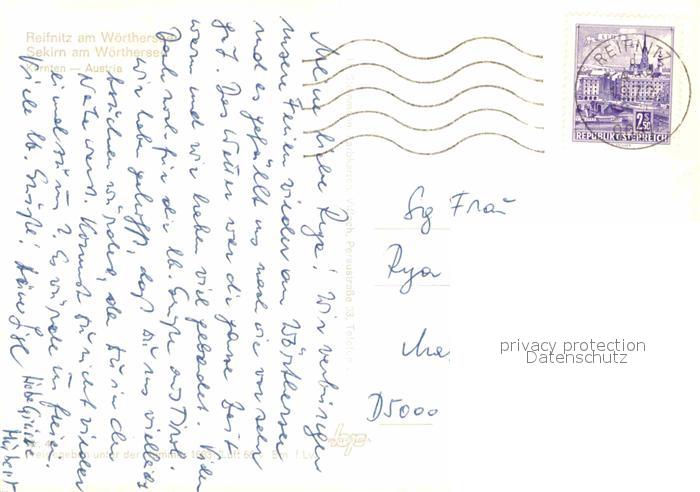 Reifnitz am Wörthersee
Sekirn am Wörthersee
Kärnten — Austria
Meine liebe Rya! Wir verbringen
unsere Ferien wieder am Wörthersee
und es gefällt uns nach wie vor sehr
gut. Das Wetter war die ganze Zeit
warm und wir haben viel gebadet. Vielen
Dank noch für die lb. Grüße aus Tirol.
Wir haben gehofft, daß Du uns vielleicht
besuchen würdest, da Du in der
Nähe warst. Kommst Du nicht wieder
einmal zu uns? Es würde uns freuen.
Viele lb. Grüße!
Liebe Grüße
Hubert
REIFNITZ
2 S 50
REPUBLIK ÖSTERREICH
Sg Frau
Rya
D5000
privacy protection
Datenschutz
Villach, Peraustraße 33, Telefon